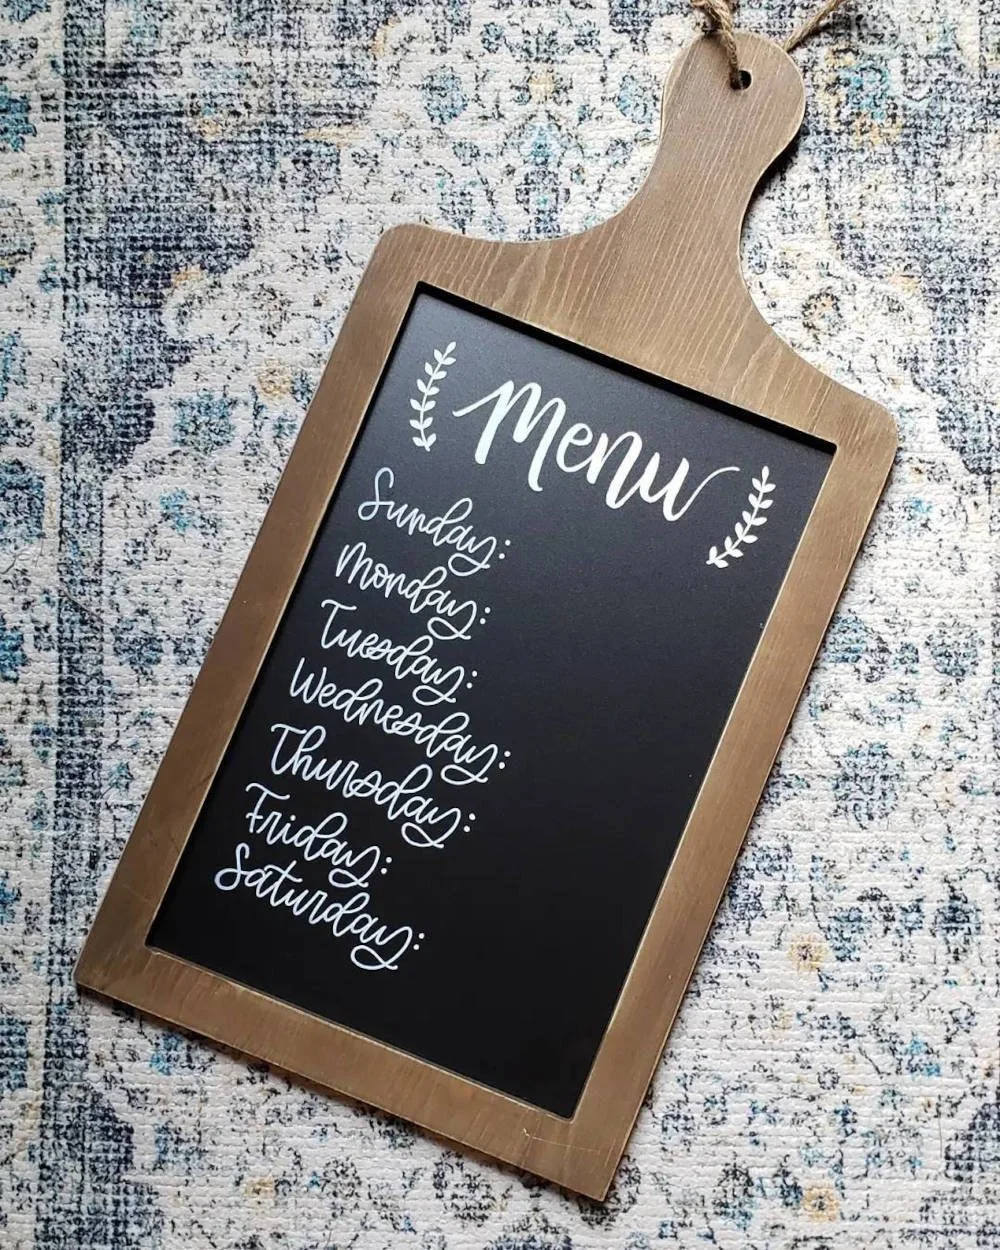 Menu
Sunday:
Monday:
Tuesday:
Wednesday:
Thursday:
Friday:
Saturday: